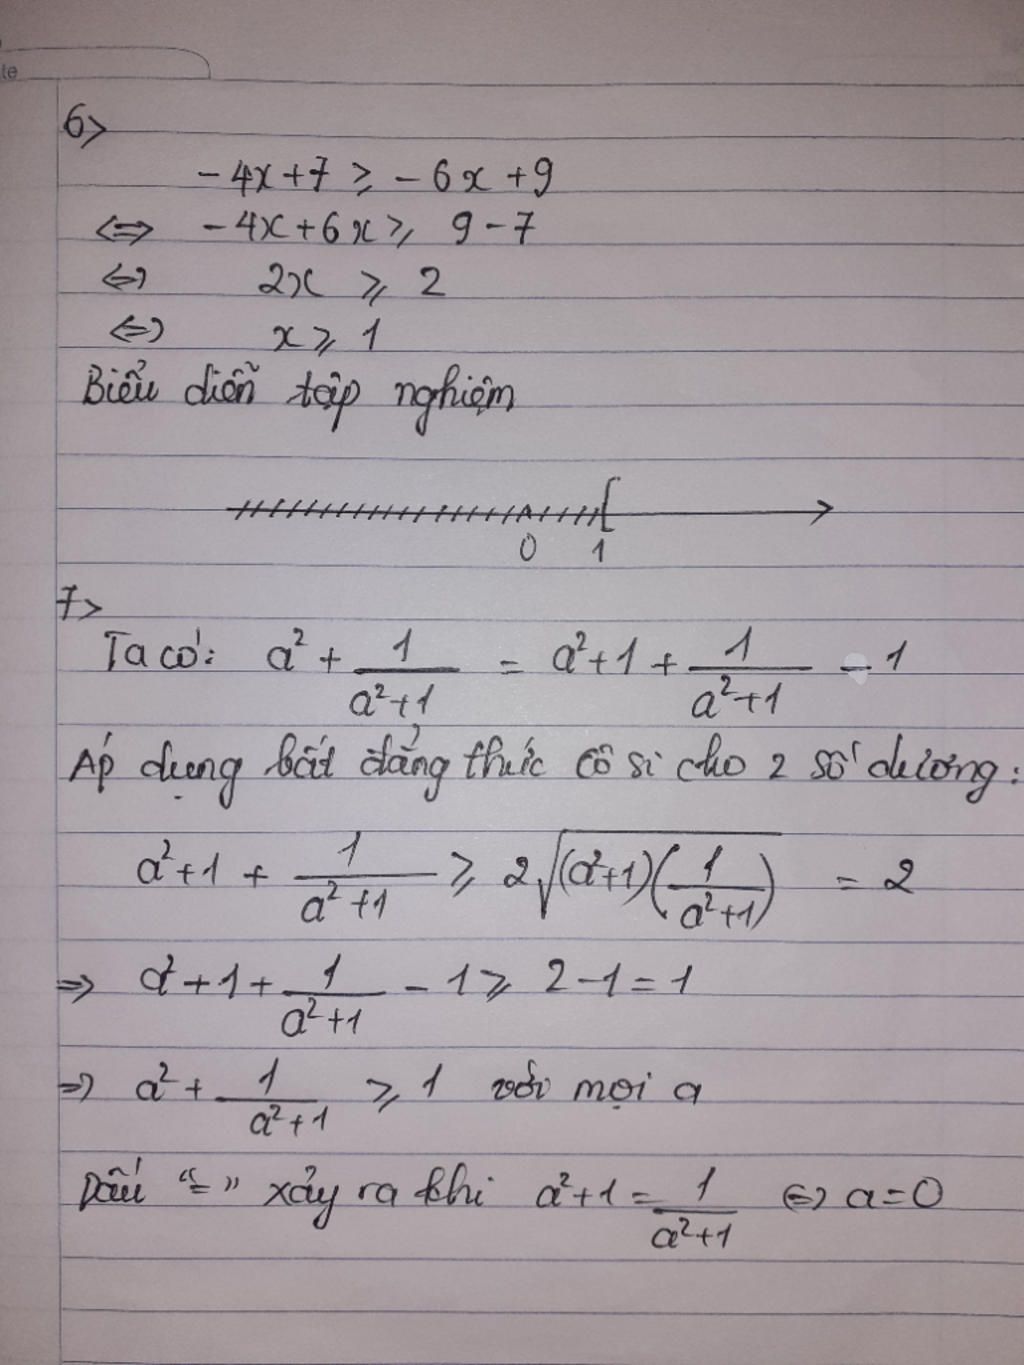 te
6>
-4x+7 ≥ -6x+9
⇔ -4x+6x ≥ 9-7
⇔ 2x ≥ 2
⇔ x ≥ 1
Biểu diễn tập nghiệm
0 1
7>
Ta có: a²+ 1/(a²+1) = a²+1+ 1/(a²+1) - 1
Áp dụng bất đẳng thức cô si cho 2 số dương:
a²+1+ 1/(a²+1) ≥ 2√((a²+1)(1/(a²+1))) = 2
⇒ a²+1+ 1/(a²+1) - 1 ≥ 2-1=1
⇒ a²+ 1/(a²+1) ≥ 1 với mọi a
Dấu "=" xảy ra khi a²+1= 1/(a²+1) ⇔ a=0